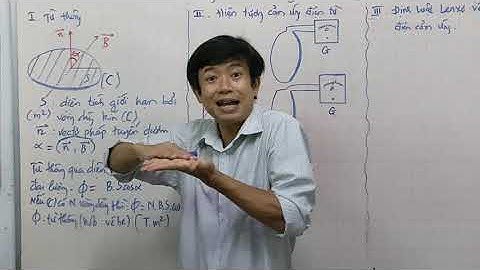 I Từ thông
n⃗
α
B⃗
(C)
S : diện tích giới hạn bởi
(m²) vòng dây kín (C)
n⃗ : vectơ pháp tuyến dương
α = (n⃗, B⃗)
Từ thông qua diện
đại lượng - Φ = B.S.cosα
Nếu (C) có N vòng dây thì: Φ = N.B.S.
Φ : từ thông (Wb : vê be) (T.m²)
II . Hiện tượng cảm ứng điện từ
G
G
III Định luật Lenxơ về
điện cảm ứng.